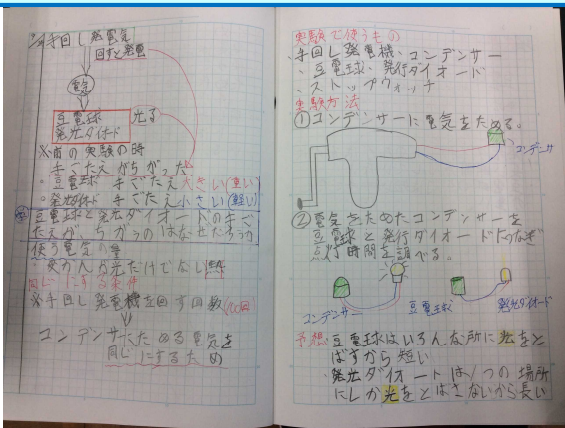 手回し発電気
回すと発電
電気
豆電球 光る
発光ダイオード
※前の実験の時
手ごたえがちがった
・豆電球 手ごたえ大きい(重い)
・発光ダイオード 手ごたえ小さい(軽い)
豆電球と発光ダイオードの手ご
たえが、ちがうのはなぜだろうか
使う電気の量
同じにする条件
※手回し発電機を回す回数(100回)
コンデンサーにためる電気を
同じにするため
実験で使うもの
・手回し発電機、コンデンサー
・豆電球、発行ダイオード
・ストップウォッチ
実験方法
①コンデンサーに電気をためる。
コンデンサ
②電気をためたコンデンサーを
豆電球と発行ダイオードにつなぎ
点灯時間を調べる。
コンデンサー 豆電球 発光ダイオード
予想 豆電球はいろんな所に光をと
ばすから短い
・発光ダイオードは1つの場所
にしか光をとばさないから長い